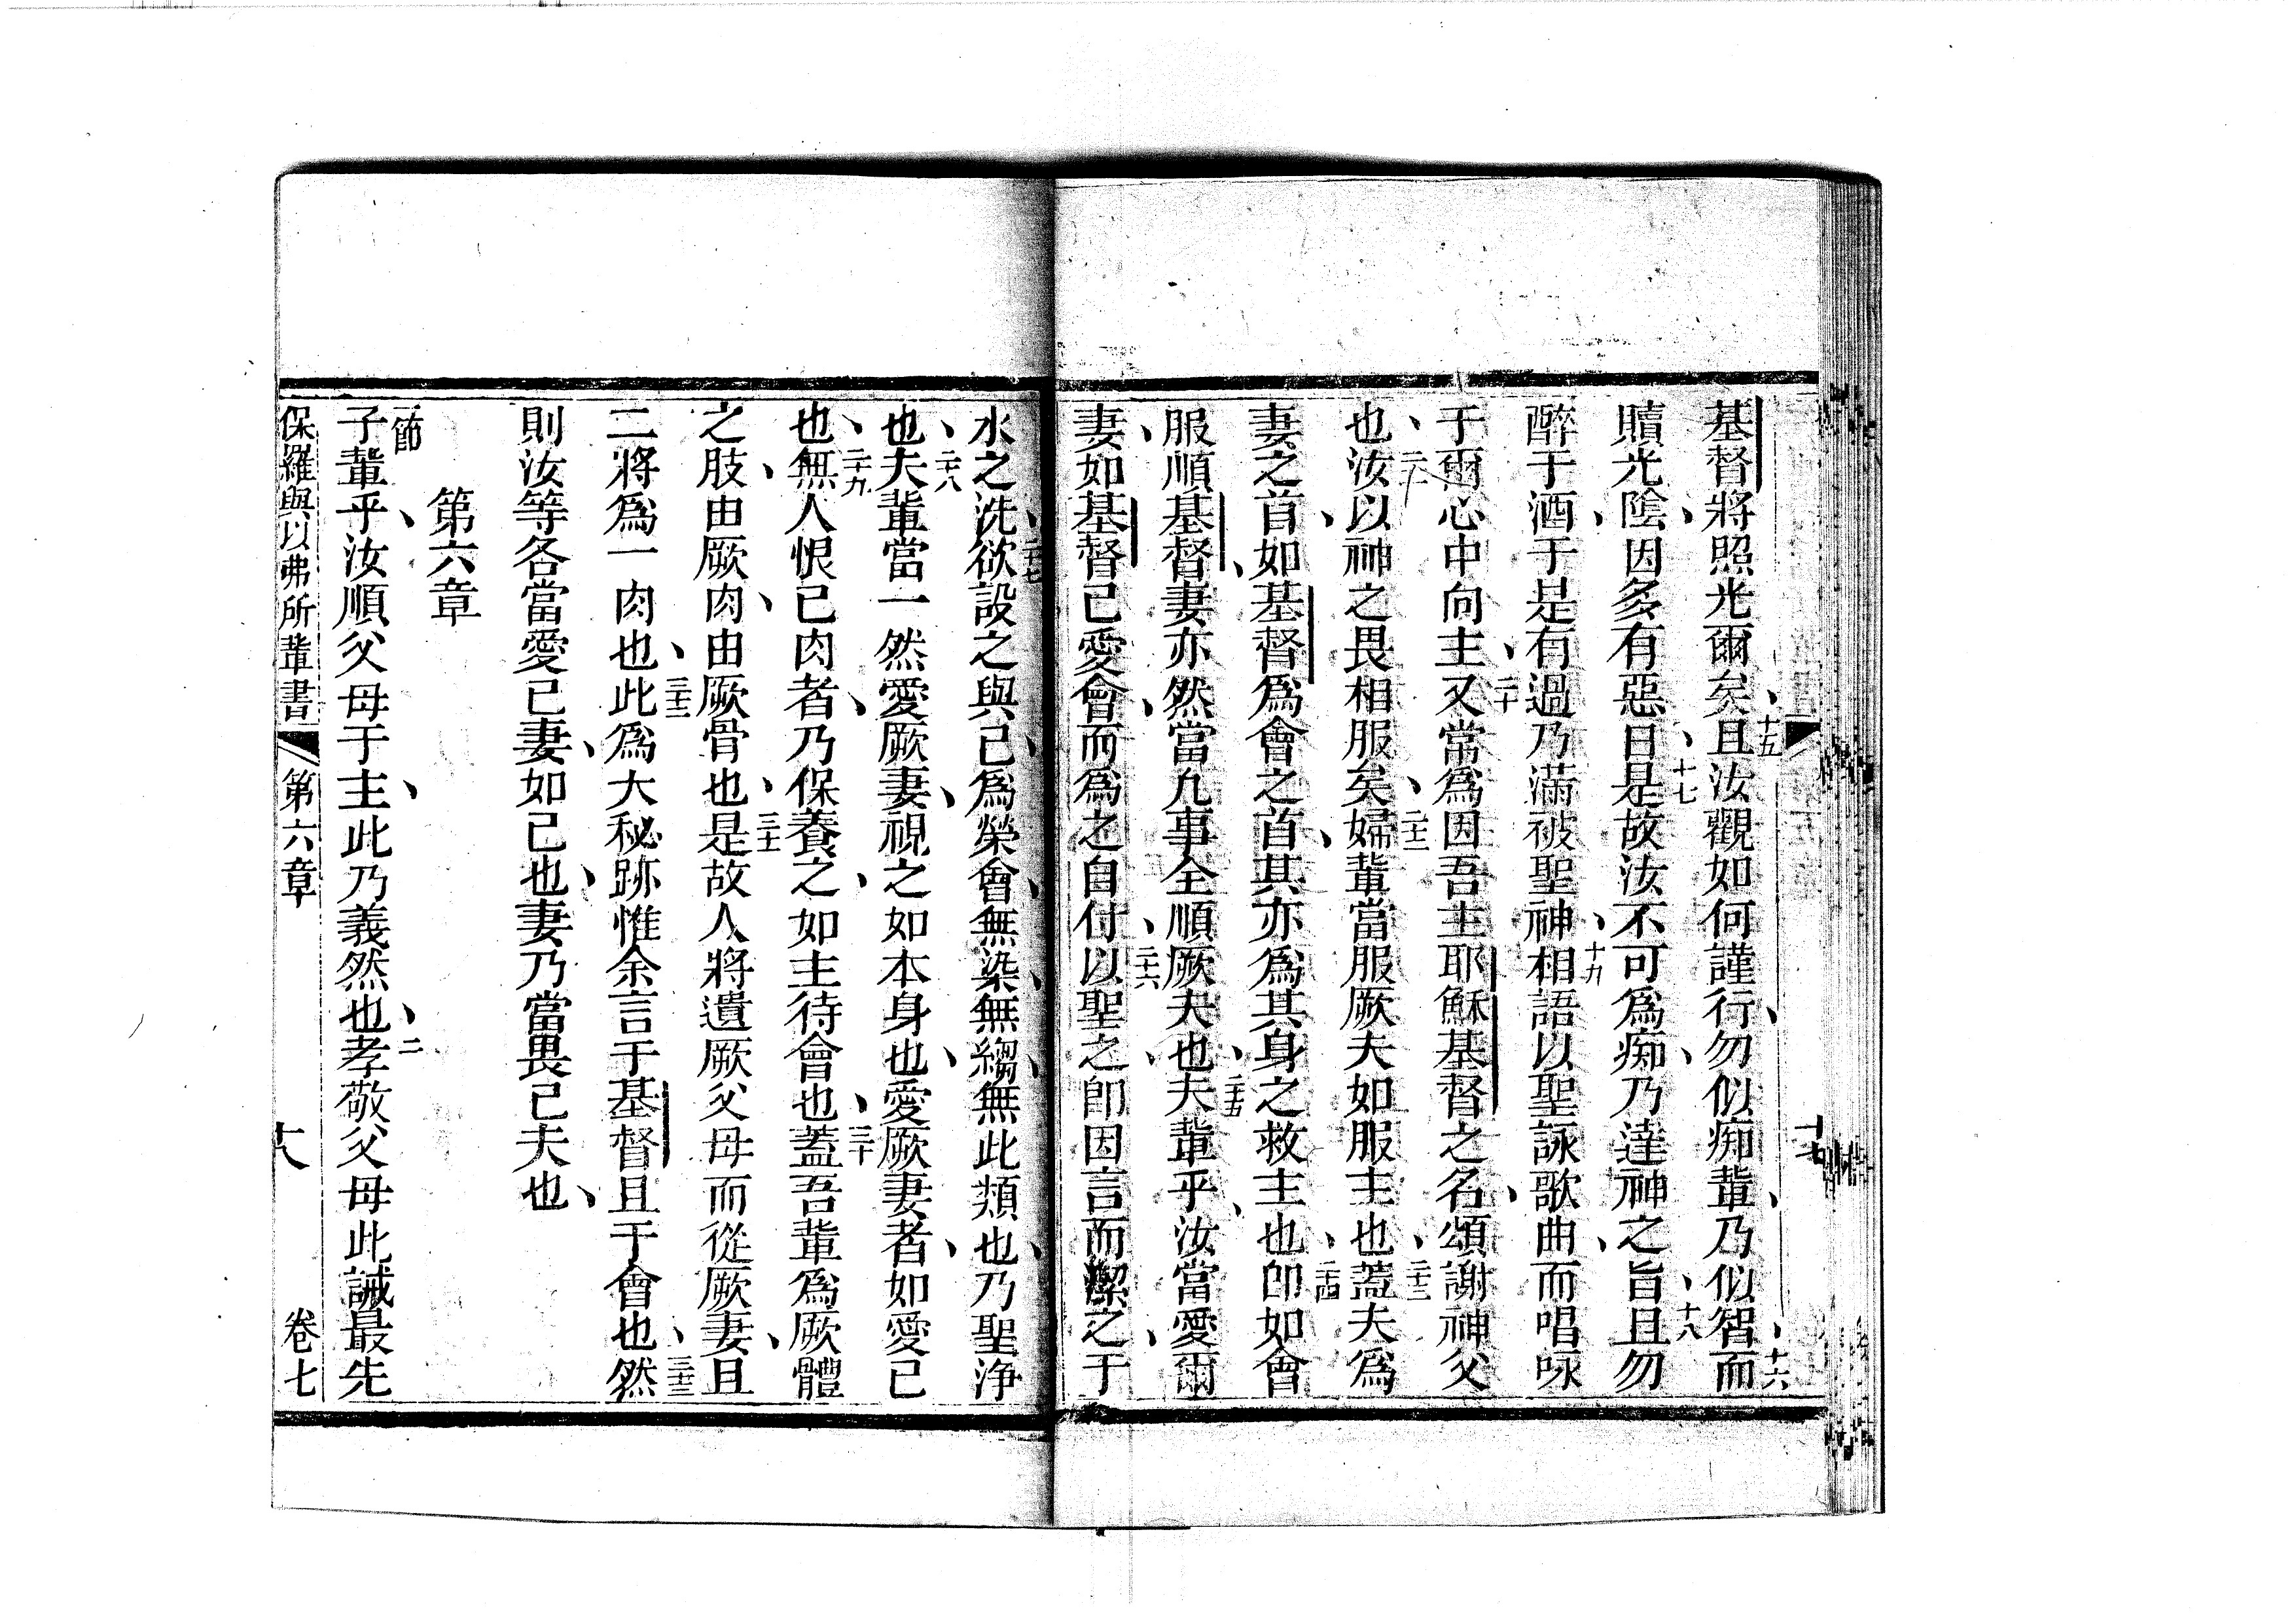 基督將照光爾矣、十五且汝觀如何謹行、勿似痴輩、乃似智、十六而
贖光陰、因多有惡日、十七是故汝不可爲痴、乃達神之旨、十八且勿
醉于酒、于是有過乃滿被聖神、十九相語以聖詠歌曲、而唱咏
于爾心中向主、二十又常爲因吾主耶穌基督之名、頌謝神父
也、汝以神之畏相服矣、二十二婦輩當服厥夫如服主也、二十三蓋夫爲
妻之首、如基督爲會之首、其亦爲其身之救主也、二十四即如會
服順基督、妻亦然當凡事全順厥夫也、二十五夫輩乎、汝當愛爾
妻、如基督已愛會、而爲之自付、二十六以聖之、即因言而潔之、于
水之洗、二十七欲設之與己、爲榮會、無染、無縐、無此類也、乃聖淨
也、二十八夫輩當一然愛厥妻、視之如本身也、愛厥妻者、如愛己
也、二十九無人恨己肉者、乃保養之、如主待會也、三十蓋吾輩爲厥體
之肢、由厥肉、由厥骨也、三十一是故人將遺厥父母而從厥妻、且
二將爲一肉也、三十二此爲大秘跡惟余言于基督且于會也、三十三然
則汝等各當愛己妻、如己也、妻乃當畏己夫也、
第六章
一節子輩乎、汝順父母于主、此乃義然也、二孝敬父母此誡最先
保羅與以弗所輩書 第六章 十八 卷七